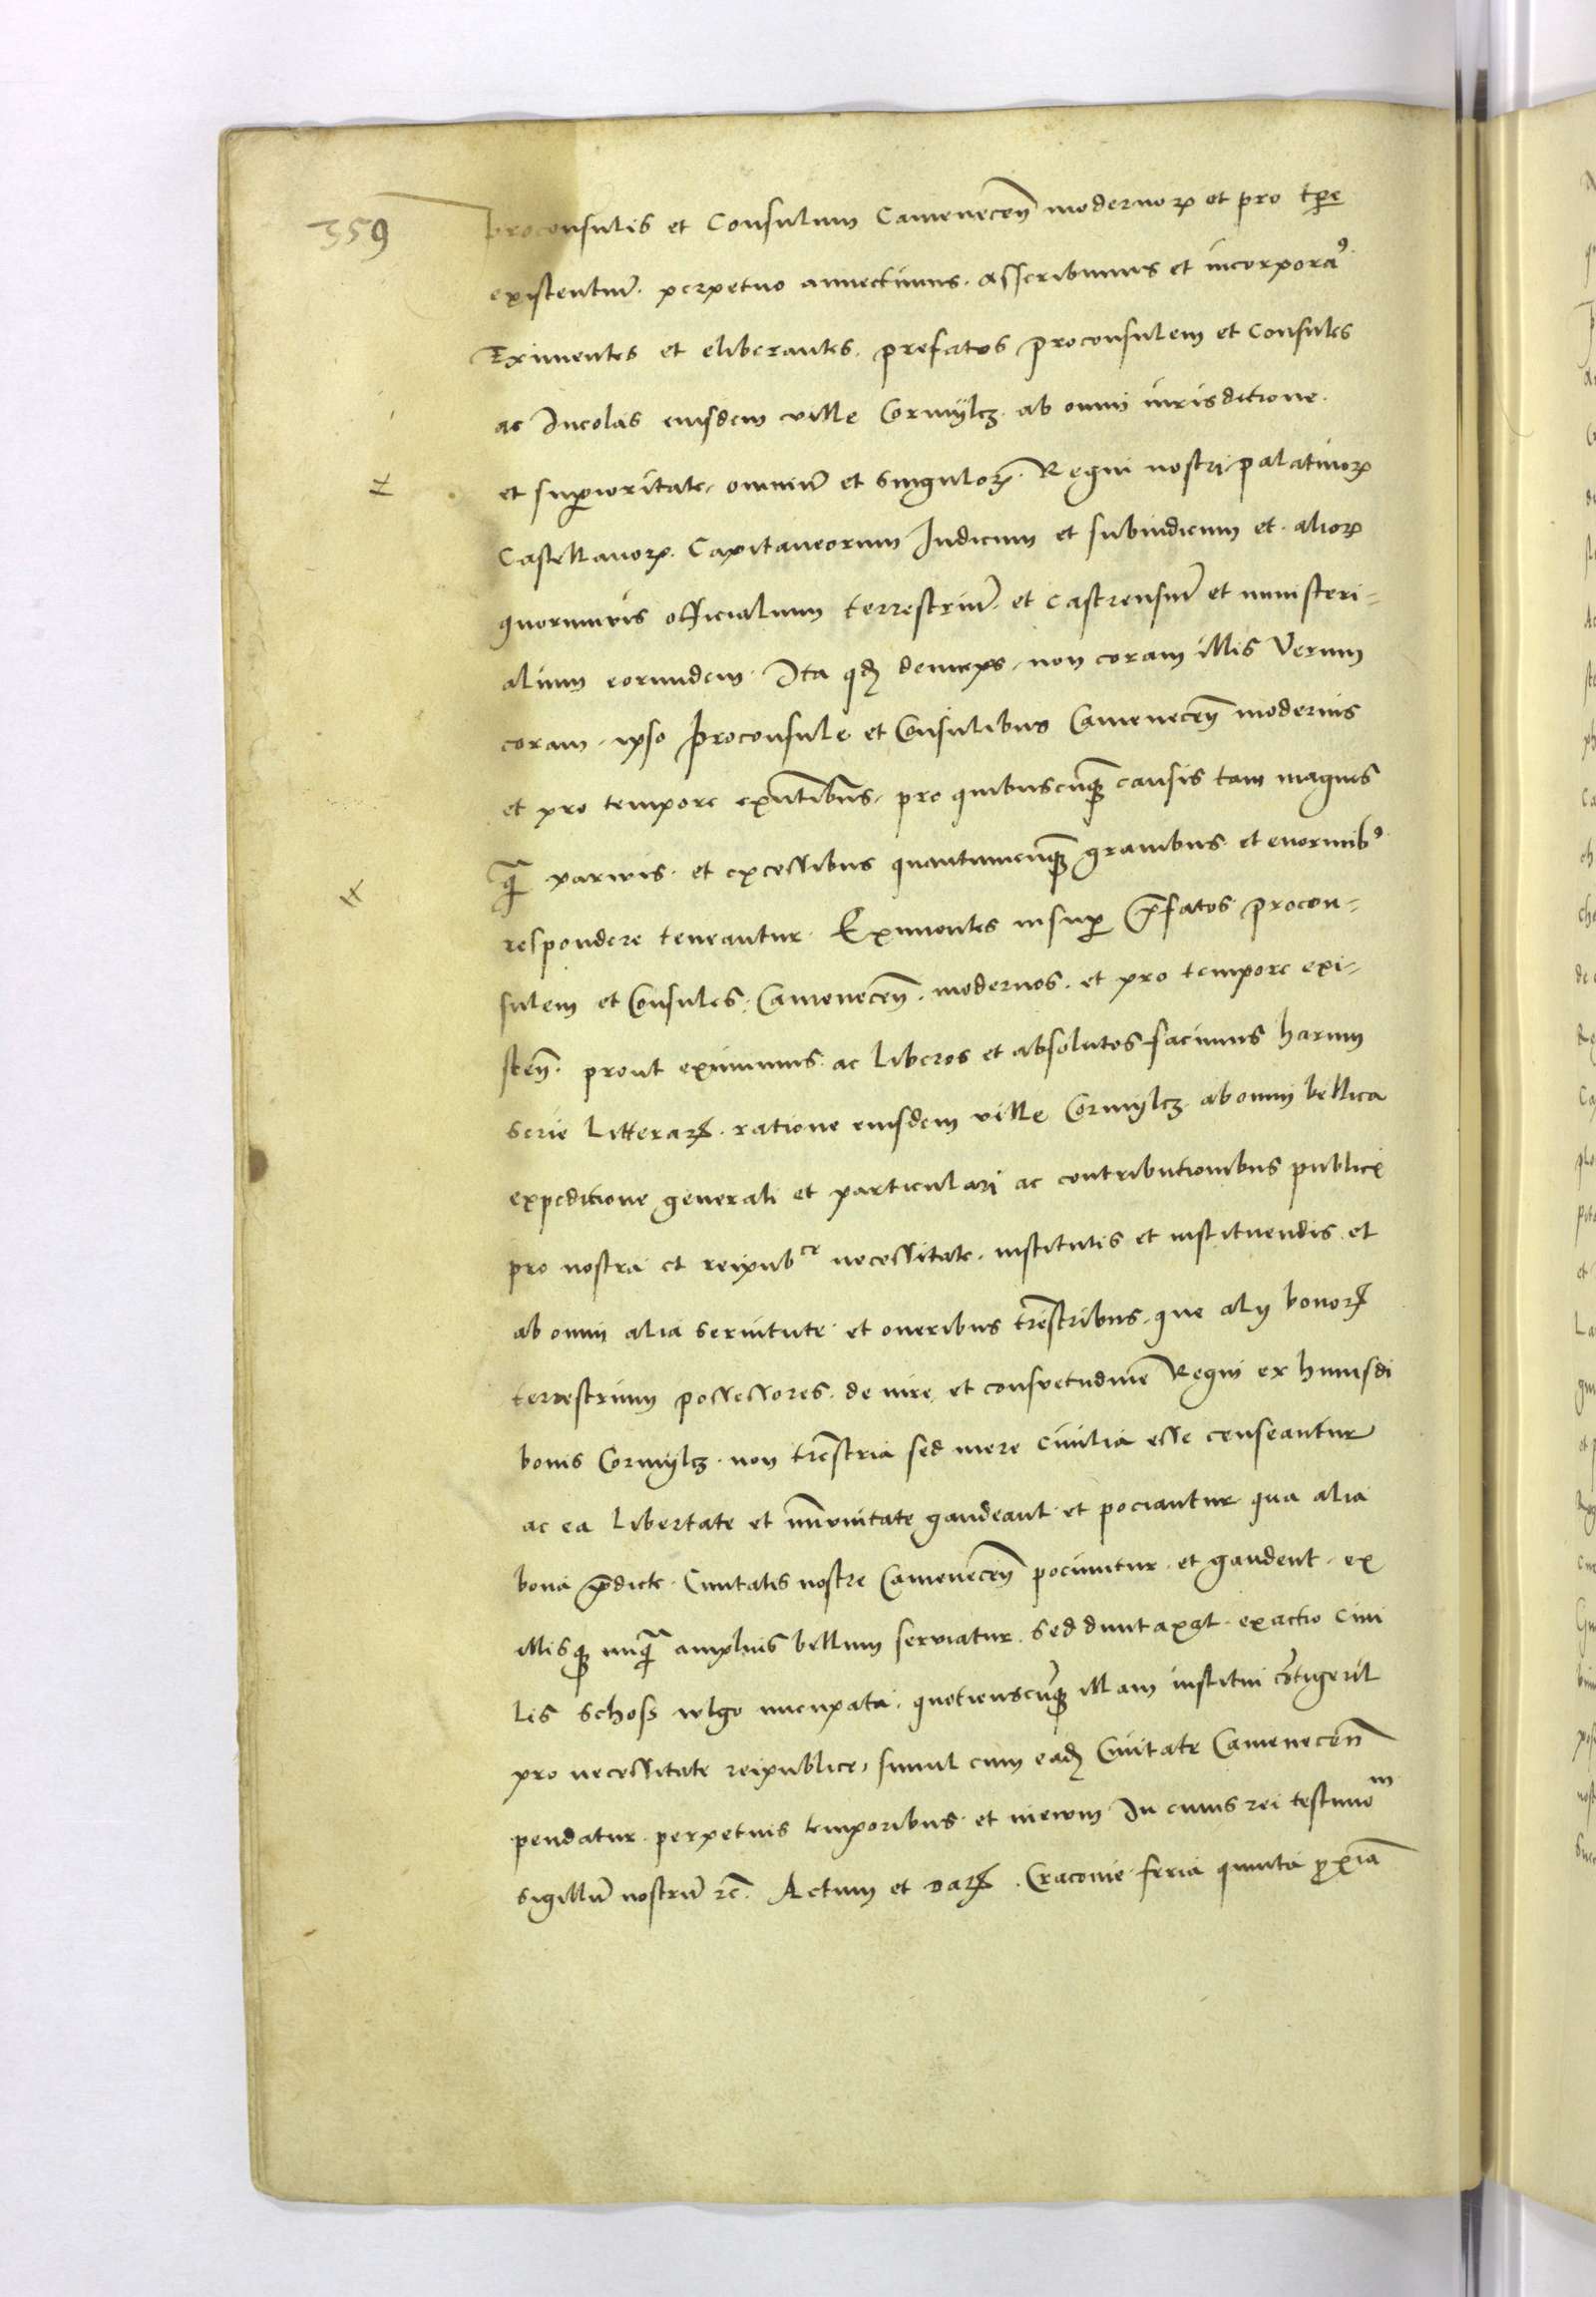 359
proconsulis et Consulum Camenecen̄ modernoꝝ et pro tp̄e
existentiū. perpetuo annectimus. asscribimus et incorporaꝰ.
Eximentes et eliberantes. prefatos proconsulem et consules
ac Incolas eiusdem ville Cormÿlcz. ab omni iurisditione.
et suꝑioritate, omniū et singuloꝝ. Regni nostri palatinoꝝ
Castellanoꝝ. Capitaneorum Iudicum et subiudicum et. alioꝝ
quorumvis officialium terrestriū. et castrensiū et ministeri=
alium eorundem. Ita qđ deinceps. non coram illis Verum
coram. ipso proconsule et Consulibus Camenecen̄ modernis
et pro tempore exn̄tibus, pro quibuscūqꝫ causis tam magnis
qͣ parvis. et excessibus quantumcūqꝫ gravibus et enormibꝰ
respondere teneantur. Eximentes insuꝑ p̄fatos procon=
sulem et Consules. Camenecen̄. modernos. et pro tempore exi=
sten̄. prout eximimus. ac liberos et absolutos facimus harum
serie litteraꝝ. ratione eiusdem ville Cormÿlcz. ab omni bellica
expeditione generali et particulari ac contributionibus publicis
pro nostra et reipubᶜᵉ necessitate. institutis et instituendis. et
ab omni alia servitute. et oneribus tr̄estribus. que alij bonoꝝ
terrestrium possessores. de iure. et consvetudine Regni ex huiusdi
bonis Cormÿlcz. non tr̄estria sed mere civilia esse censeantur
ac ea libertate et im̄unitate gaudeant. et pociantur qua alia
bona p̄dicte. Civitatis nostre Camenecen̄ pociuntur. et gaudent. ex
illisqꝫ nuqͣ amplius bellum serviatur. sed duntaxat. exactio civi
lis schoss wlgo nucupata. quotienscūqꝫ illam institui cōtigeril
pro necessitate reipublice, simul cum eađ Civitate Camenecen̄
pendatur. perpetuis temporibus. et inewm. In cuius rei testimoᵐ
sigillū nostrū ꝛc̄. Actum et Daꝝ. Cracovie. feria quinta ꝓxīa